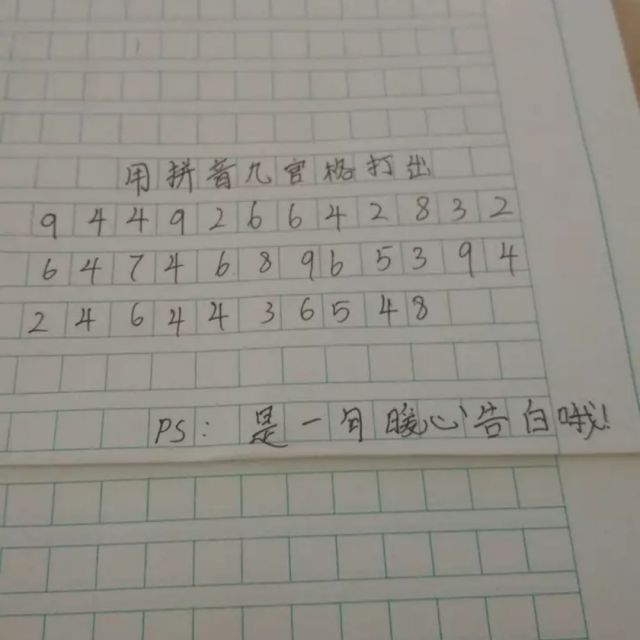 用拼音九宫格打出
9 4 4 9 2 6 6 4 2 8 3 2
6 4 7 4 6 8 9 6 5 3 9 4
2 4 6 4 4 3 6 5 4 8
PS: 是一句暖心告白哦!